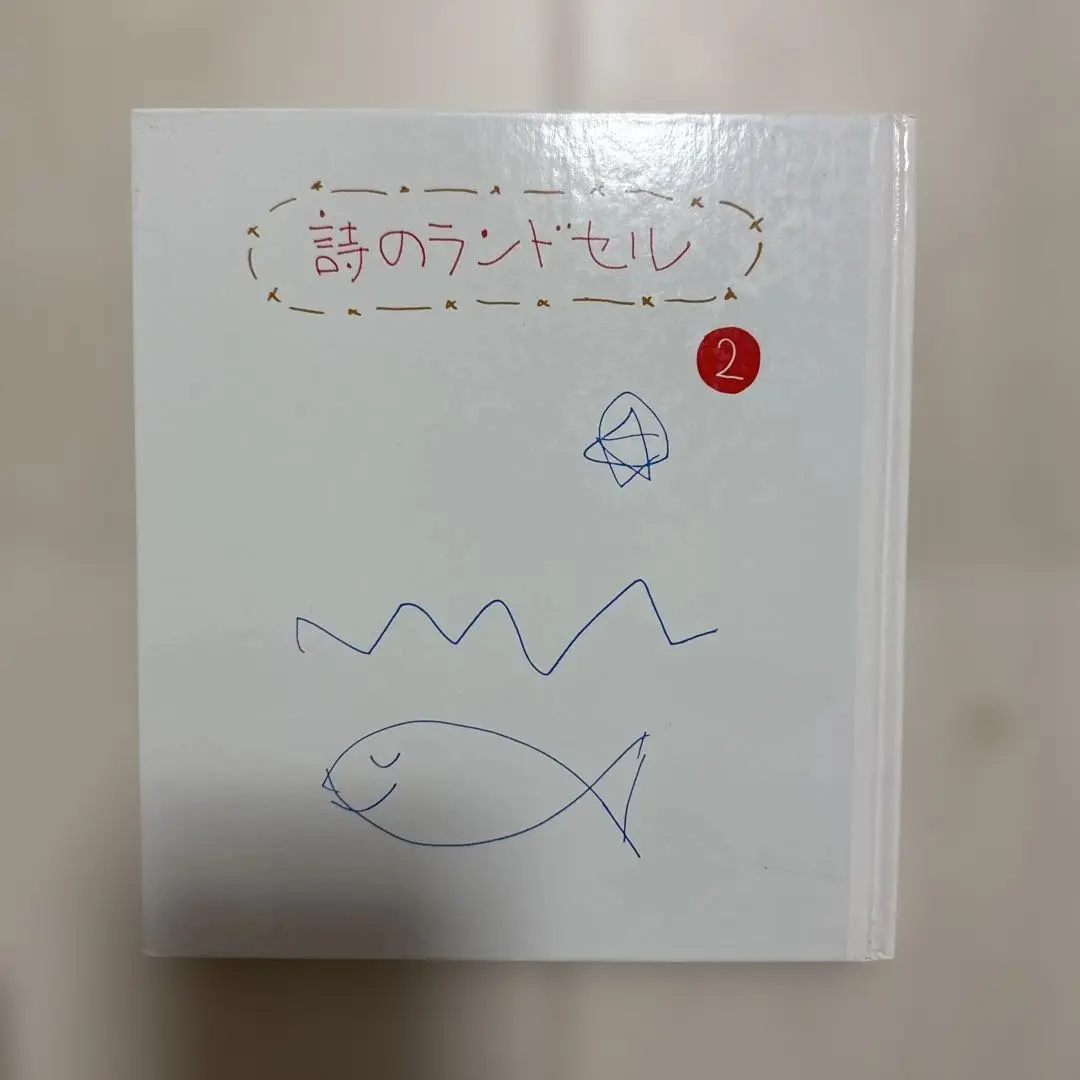 詩のランドセル
2